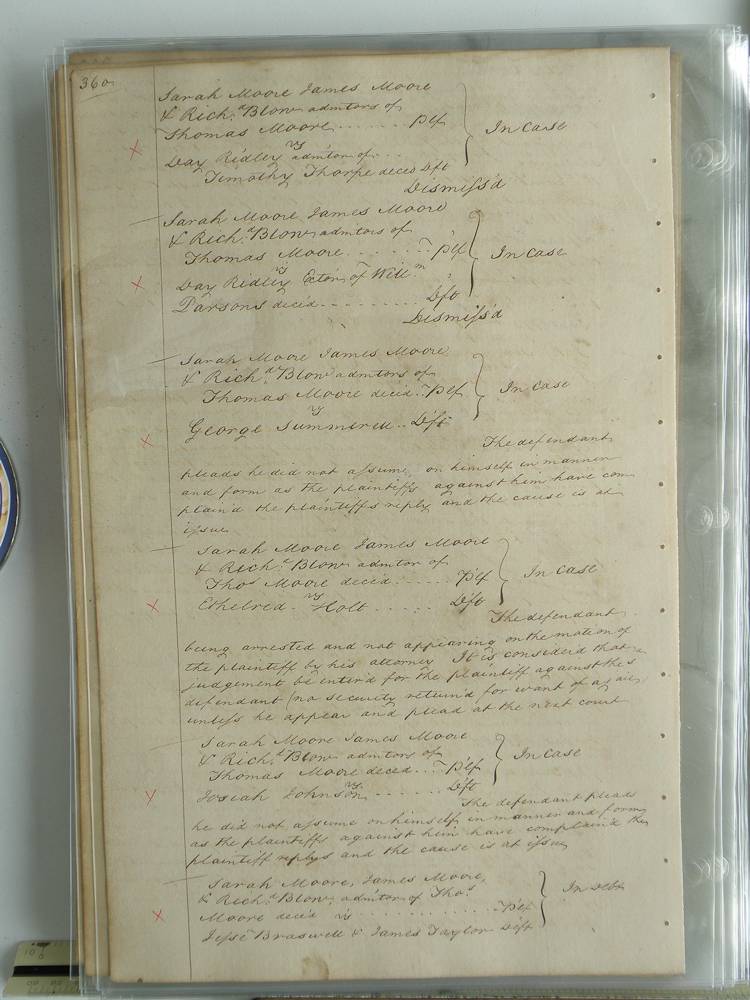 360.
Sarah Moore James Moore
& Rich.d Blow admtors of
Thomas Moore...... Plf } In Case
vs
Day Ridley admtor of...
Timothy Thorpe deced Dft
Dismiss'd
Sarah Moore James Moore
& Rich.d Blow admtors of
Thomas Moore....... Plf } In Case
vs
Day Ridley Extor of Will.m
Parsons deced......... Dft
Dismiss'd
Sarah Moore James Moore
& Rich.d Blow admtors of
Thomas Moore decd. Plf } In Case
vs
George Summerell.. Dft
The defendant
pleads he did not assume, on himself in manner
and form as the plaintiffs against him have com
plain'd the plaintiffs reply and the cause is at
issue
Sarah Moore James Moore
& Rich.d Blow admtor of
Thos Moore decied...... Plf } In Case
vs
Ethelred Holt...... Dft
The defendant
being arrested and not appearing on the motion of
the plaintiff by his attorney It is considerd that
judgement be enter'd for the plaintiff against the
defendant (no security return'd for want of
unless he appear and plead at the next court
Sarah Moore James Moore
& Rich.d Blow admtors of
Thomas Moore deced... Plf } In Case
vs
Josiah Johnson....... Dft
The defendant pleads
he did not assume on himself in manner and form
as the plaintiffs against him have complain'd the
plaintiff replys and the cause is at issue
Sarah Moore, James Moore,
& Rich.d Blow admtors of Thos
Moore decied vs............ Plf } In Debt
Jesse Braswell & James Taylor Dft